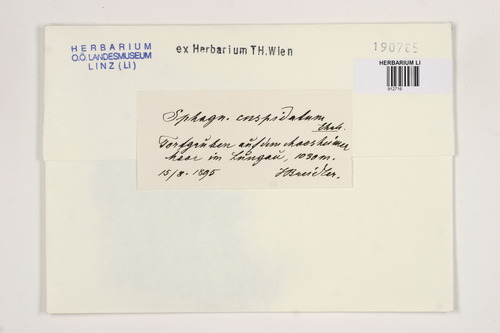 HERBARIUM
O.Ö. LANDESMUSEUM
LINZ (LI)
ex Herbarium TH.Wien
190785
HERBARIUM LI
912716
Sphagn. cuspidatum
Torfgruben auf dem Moosheimer
Moor im Lungau, 1030 m.
15/8. 1895
J Breidler.